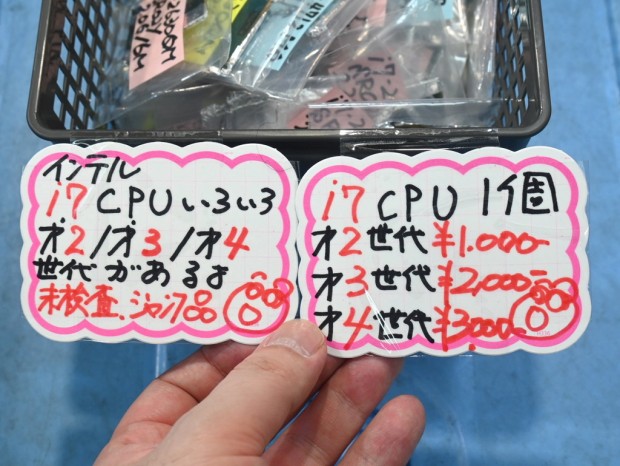 インテル
i7 CPUいろいろ
才2/才3/才4
世代があるよ
未検査、ジャンク品
i7 CPU 1個
才2世代 ¥1.000-
才3世代 ¥2,000-
才4世代 ¥3,000-